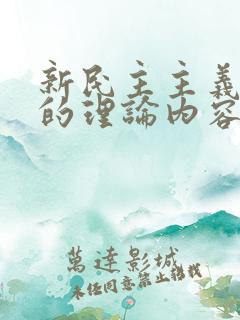 新民主主義
的理論内容
萬達影城
未經同意禁止轉載